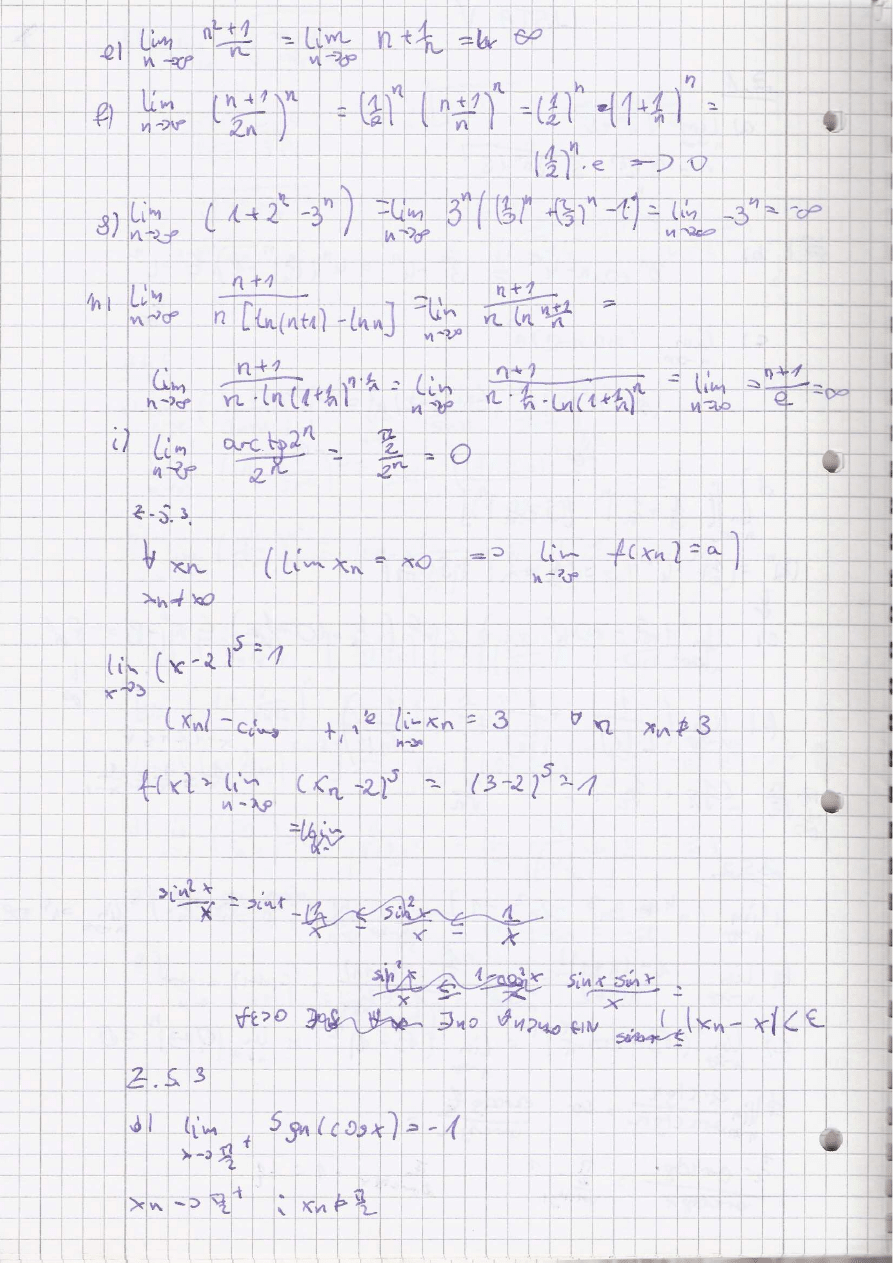 e) lim n→∞ (n²+1)/n = lim n→∞ n + 1/n = ∞
f) lim n→∞ ((n+1)/2n)^n = (1/2)^n ((n+1)/n)^n = (1/2)^n · (1+1/n)^n =
(1/2)^n · e => 0
g) lim n→∞ (1+2^n-3^n) = lim n→∞ 3^n((1/3)^n + (2/3)^n - 1) = lim n→∞ -3^n = -∞
h) lim n→∞ (n+1)/(n[ln(n+1) - ln n]) = lim n→∞ (n+1)/(n ln (n+1)/n) =
lim n→∞ (n+1)/(n · ln(1+1/n)^(n·1/n)) = lim n→∞ (n+1)/(n · 1/n · ln(1+1/n)^n) = lim n→∞ = (n+1)/e = ∞
i) lim n→∞ (arctg 2^n)/2^n = (π/2)/2^n = 0
z-5.3.
∀ xn (lim xn = x0 => lim n→∞ f(xn) = a)
xn ≠ x0
lim x→3 (x-2)^5 = 1
(xn) - lim n→∞ xn = 3 ∀ n xn ≠ 3
f(x) = lim n→∞ (xn - 2)^5 = (3-2)^5 = 1
= lim
sin²x/x = sin x -1/x ≤ sin²x/x ≤ 1/x
sin²x/x ≤ (1-cos²x)/x sin x sin x/x =
∀ε>0 ∃n0 ∀n>n0 n∈N |xn - x| < ε
Z.5.3
d) lim x→π/2+ Sgn(cosx) = -1
xn → π/2+ ; xn ≠ π/2